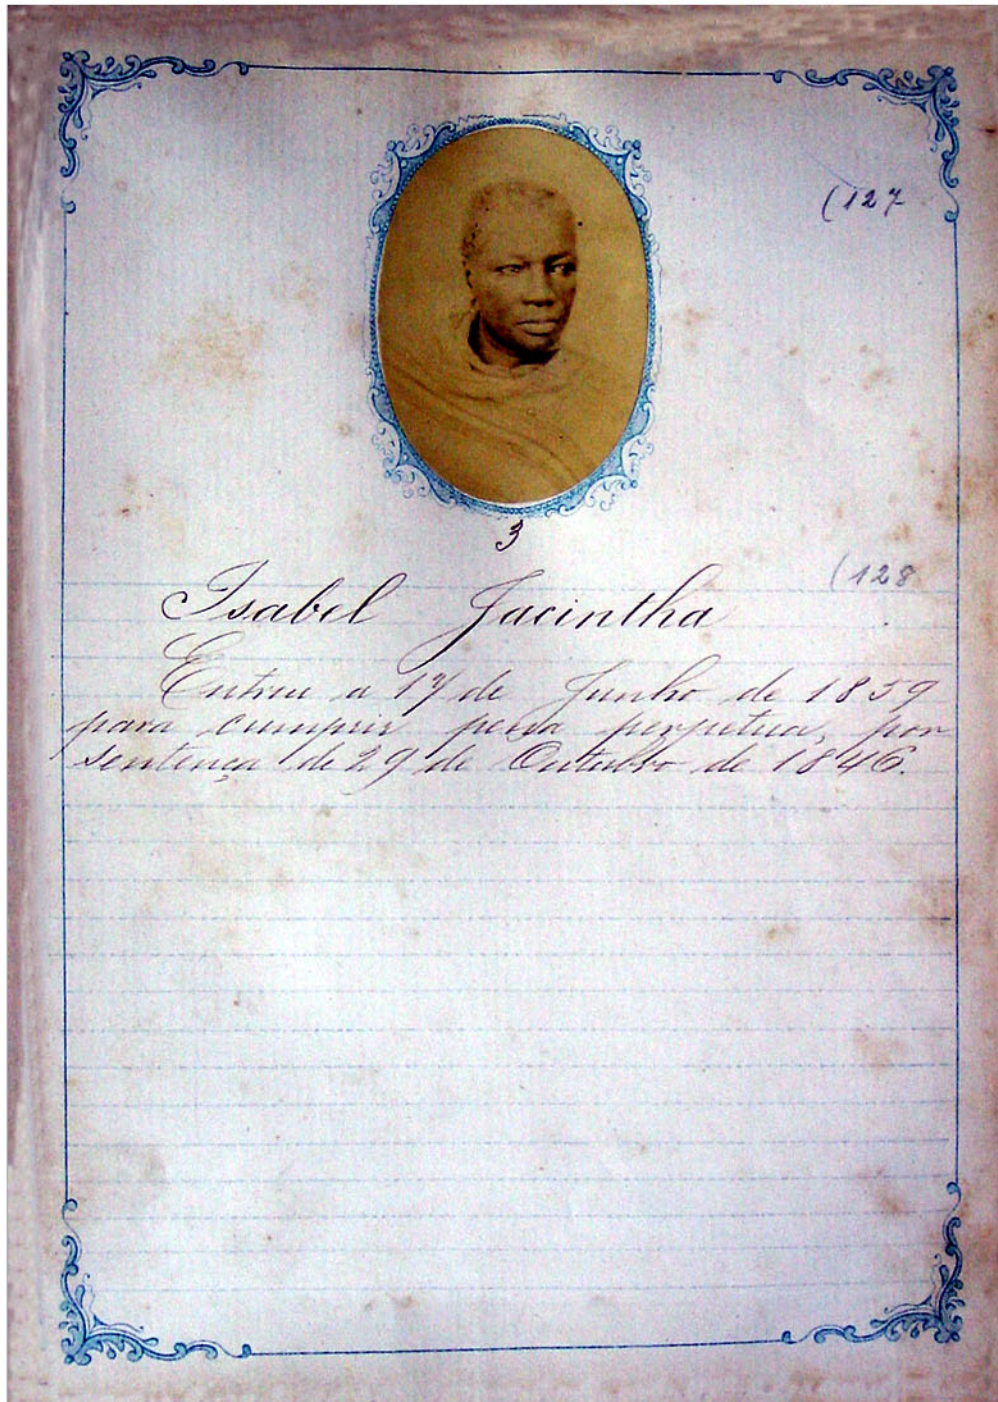 (127
3
(128
Isabel Jacintha
Entrou a 17 de Junho de 1859
para cumprir pena perpetua, por
sentença de 29 de Outubro de 1846.